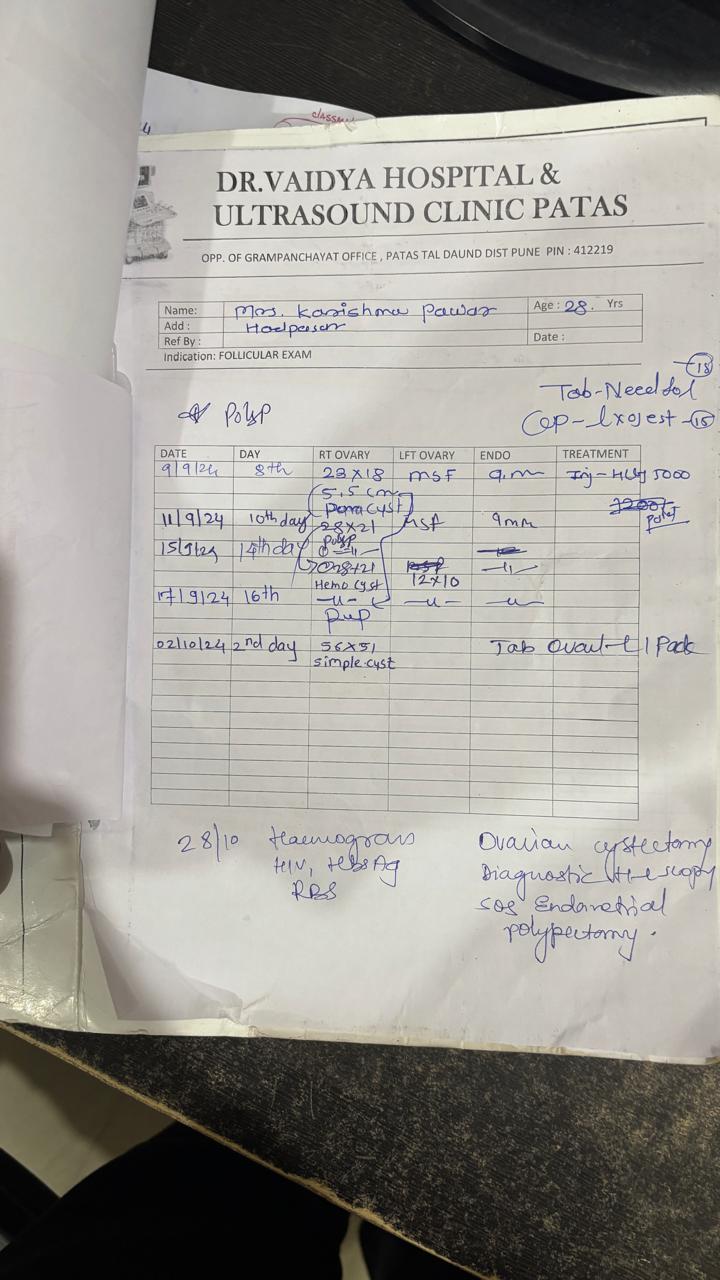 classm
DR.VAIDYA HOSPITAL &
ULTRASOUND CLINIC PATAS
OPP. OF GRAMPANCHAYAT OFFICE , PATAS TAL DAUND DIST PUNE PIN : 412219
Name: Mrs. Karishma Pawar Age : 28. Yrs
Add : Hadpasar
Ref By : Date :
Indication: FOLLICULAR EXAM
18
Tab-Needfol
Polyp
Cap-Lxojest -15
DATE DAY RT OVARY LFT OVARY ENDO TREATMENT
9/9/24 8th 23×18 MSF 9.m Inj-HCG 5000
5.5 cm
Para Cyst
11/9/24 10th day 28×21 MSF 9mm
Polyp
15/9/24 14th day -11-
028×21 -11-
Hemo Cyst 12×10
17/9/24 16th -11- -11- -11-
02/10/24 2nd day 56×51 Tab Ovaul-L 1 Pack
simple.cyst
28/10 Haemogram
HIV, HbsAg
RBS
Ovarian cystectomy
Diagnostic H-scopy
sos Endometrial
polypectomy.